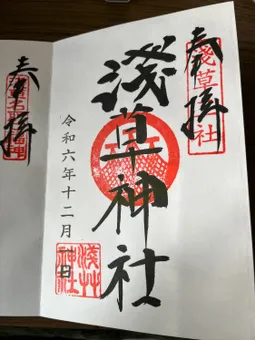 奉拝
淺草神社
淺草神社
令和六年十二月一日
淺草神社
奉拝